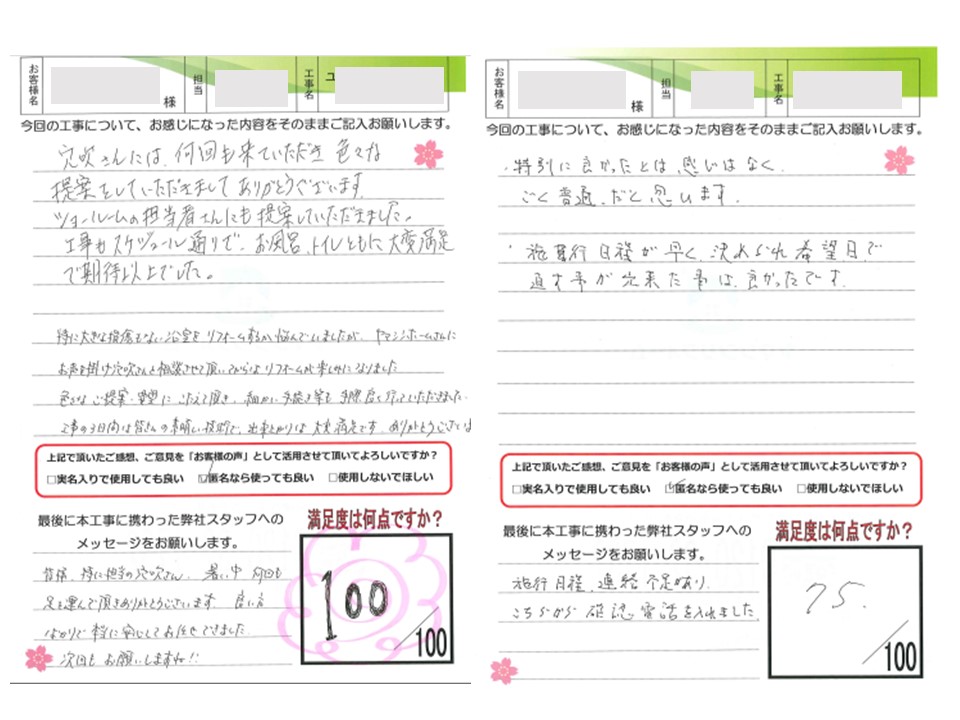 お客様名
様
担当
工事名
ユ
今回の工事について、お感じになった内容をそのままご記入お願いします。
穴吹さんには、何回も来ていただき 色々な
提案をしていただきまして ありがとうございます。
ショールームの担当者さんにも提案していただきました。
工事もスケジュール通りで、お風呂、トイレともに大変満足
で期待以上でした。
特に大きな損傷もない浴室をリフォームするか悩んでいましたが、ヤマジホームさんに
お声を掛け穴吹さんと相談させて頂いてからはリフォームが楽しみになりました
色々な ご提案・要望に こたえて頂き、細かい手続き等も 手際良く行っていただきました。
工事の3日間は皆さんの素晴しい技術で、出来上がりは 大変満足です。ありがとうございま
上記で頂いたご感想、ご意見を「お客様の声」として活用させて頂いてよろしいですか？
□実名入りで使用しても良い ☑匿名なら使っても良い □使用しないでほしい
最後に本工事に携わった弊社スタッフへの
メッセージをお願いします。
皆様、特に担当の穴吹さん、暑い中 何回も
足を運んで頂きありがとうございます。良い方
ばかりで 本当に安心してお任せできました。
次回も お願いしますね!!
満足度は何点ですか？
100
/100
お客様名
様
担当
工事名
今回の工事について、お感じになった内容をそのままご記入お願いします。
・特別に良かったとは、思いはなく
ごく普通、だと思います。
・施行日程が早く、決められ希望日で
直す事が出来た事は、良かったです。
上記で頂いたご感想、ご意見を「お客様の声」として活用させて頂いてよろしいですか？
□実名入りで使用しても良い ☑匿名なら使っても良い □使用しないでほしい
最後に本工事に携わった弊社スタッフへの
メッセージをお願いします。
施行日程、連絡不足があり、
こちらから確認電話を入れました。
満足度は何点ですか？
75.
/100